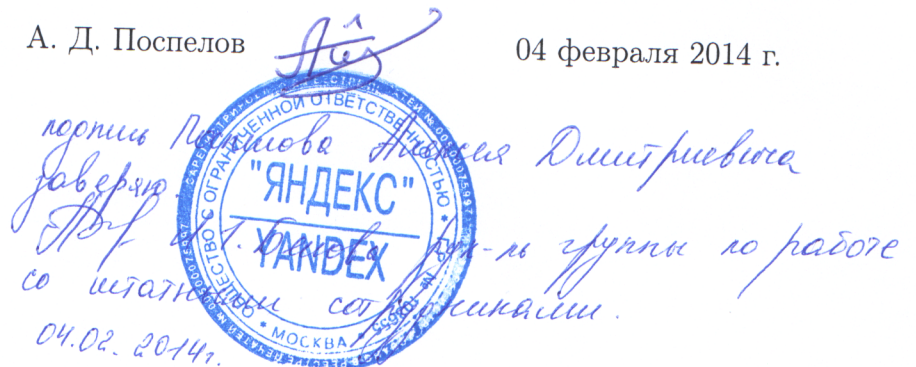 А. Д. Поспелов
04 февраля 2014 г.
подпись Поспелова Алексея Дмитриевича
заверяю.
рук-ль группы по работе
со штатными сотрудниками.
04.02.2014г.
ОБЩЕСТВО С ОГРАНИЧЕННОЙ ОТВЕТСТВЕННОСТЬЮ
"ЯНДЕКС"
YANDEX
МОСКВА